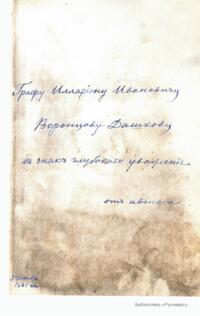 Графу Илларіону Ивановичу
Воронцову Дашкову
въ знакъ глубокаго уваженія
отъ автора
Библиотека «Руниверс»